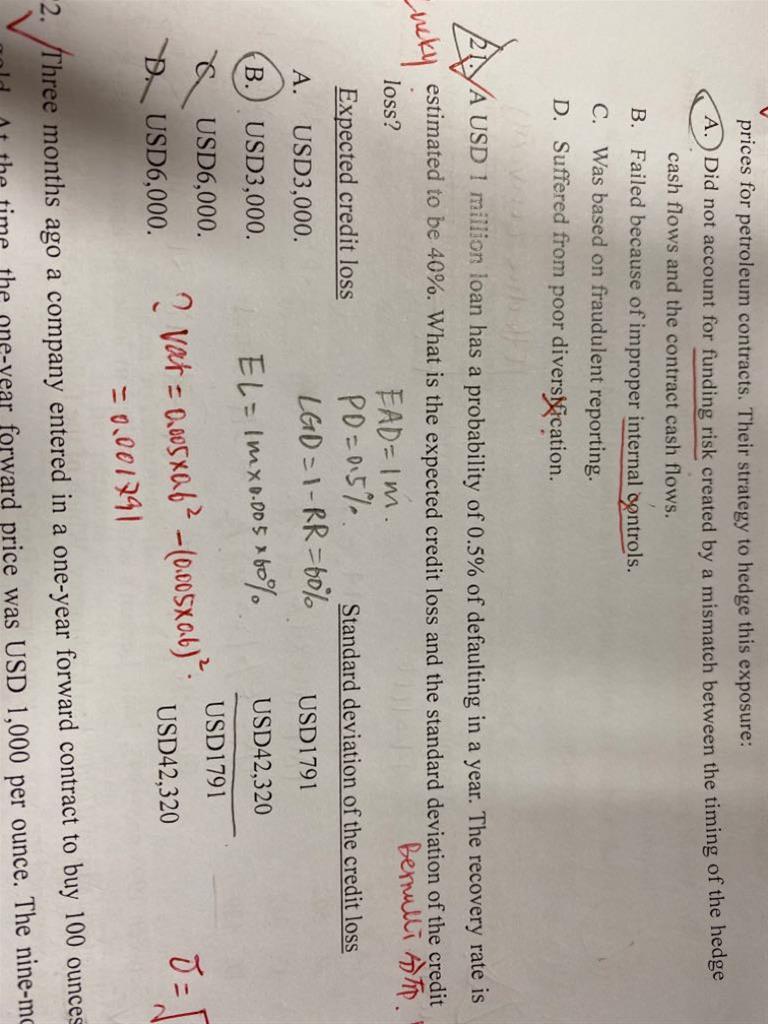 prices for petroleum contracts. Their strategy to hedge this exposure:
A. Did not account for funding risk created by a mismatch between the timing of the hedge
cash flows and the contract cash flows.
B. Failed because of improper internal controls.
C. Was based on fraudulent reporting.
D. Suffered from poor diversification.
21. A USD 1 million loan has a probability of 0.5% of defaulting in a year. The recovery rate is
Lucky estimated to be 40%. What is the expected credit loss and the standard deviation of the credit
loss?
EAD=1m. Bernulli 分布.
PD=0.5%.
Expected credit loss Standard deviation of the credit loss
LGD=1-RR=60%
A. USD3,000. USD1791
B. USD3,000. USD42,320
EL=1m×0.005×60%
C. USD6,000. USD1791
D. USD6,000. USD42,320
? Var=0.005×0.6²-(0.005×0.6)².
=0.001791
σ=√
2. Three months ago a company entered in a one-year forward contract to buy 100 ounces
gold. At the time, the one-year forward price was USD 1,000 per ounce. The nine-mo